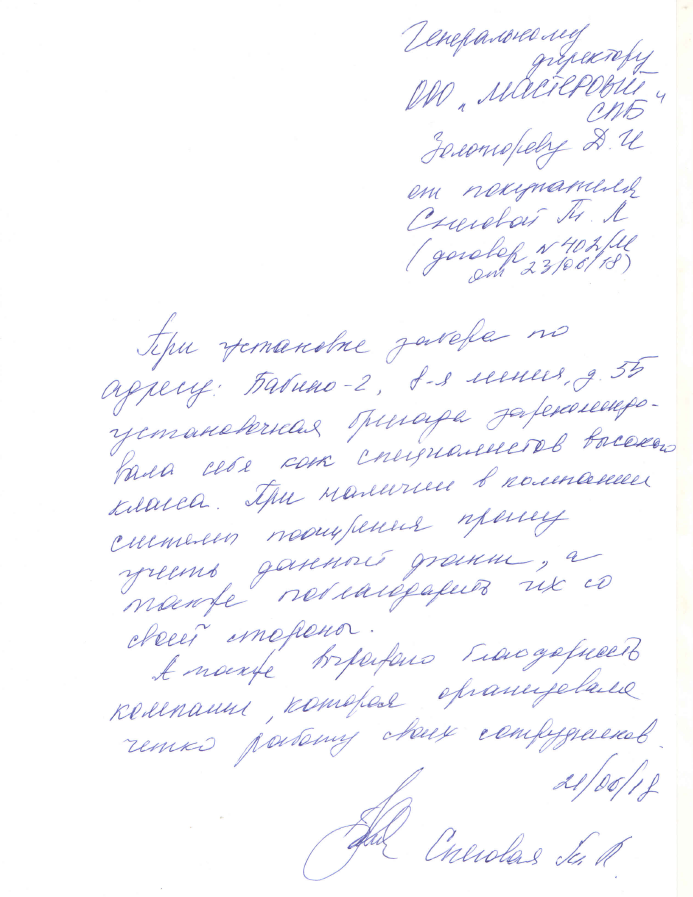 Генеральному
директору
ООО „МАСТЕРОВЫЙ"
СПБ
Золотореву Д. И
от покупателя
Снеговой Т. Л
(договор №402/М
от 23/06/18)
При установке забора по
адресу: Бабино-2, 8-я линия, д. 55
установочная бригада зарекомендо-
вала себя как специалистов высокого
класса. При наличии в компании
системы поощрения прошу
учесть данный факт, а
также поблагодарить их со
своей стороны.
А также выражаю благодарность
компании, которая организовала
четко работу своих сотрудников.
/06/18
Снеговая Т.